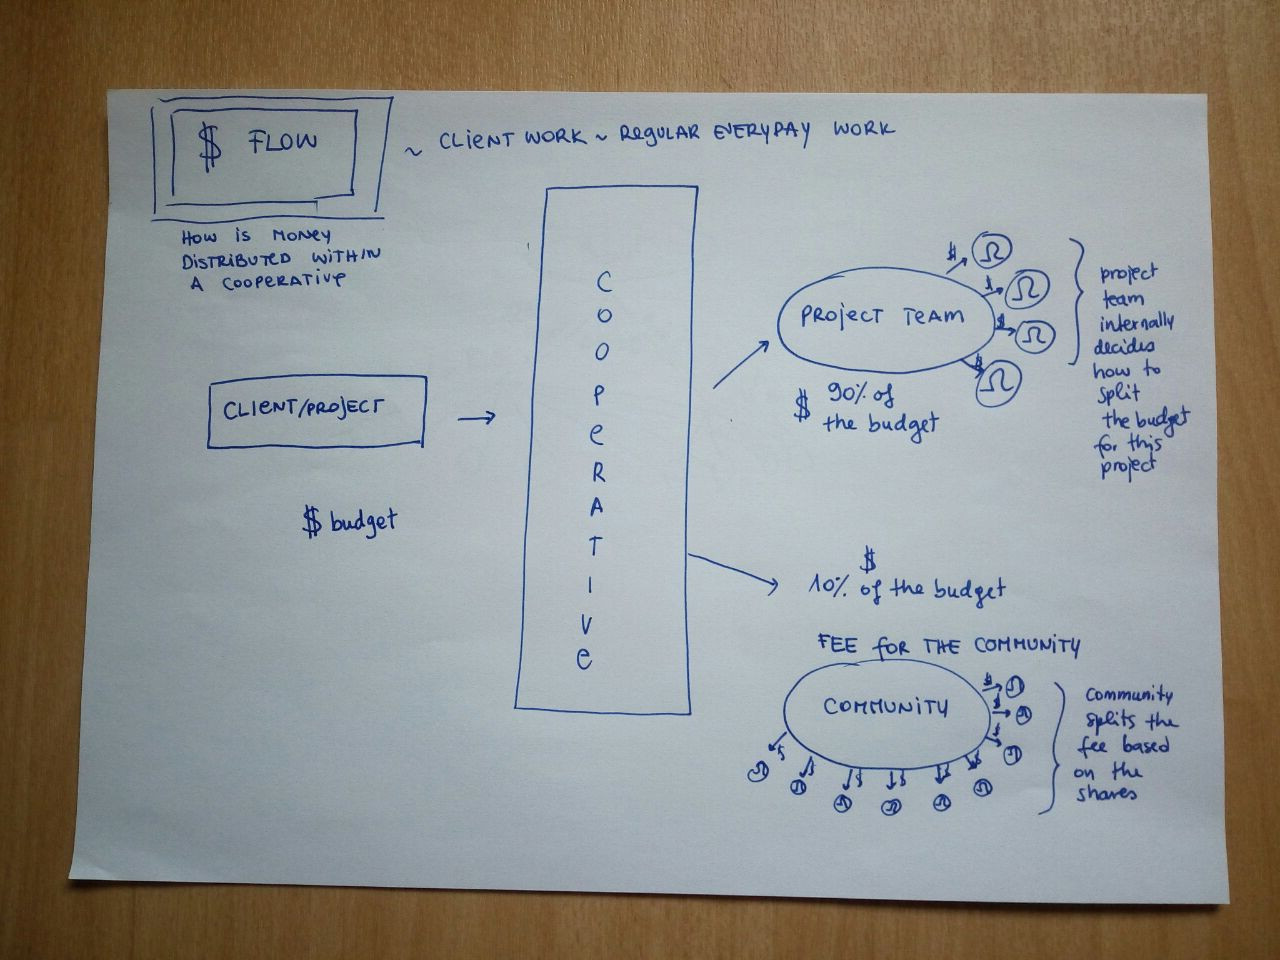 $ FLOW
~ CLIENT WORK ~ REGULAR EVERYPAY WORK
HOW IS MONEY
DISTRIBUTED WITHIN
A COOPERATIVE
CLIENT/PROJECT
$ budget
COOPERATIVE
PROJECT TEAM
$ 90% of
the budget
$ Ω
$ Ω
$ Ω
$ Ω
project
team
internally
decides
how to
split
the budget
for this
project
$
10% of the budget
FEE FOR THE COMMUNITY
COMMUNITY
$ Ω
$ Ω
$ Ω
$ Ω
$ Ω
$ Ω
$ Ω
$ Ω
$ Ω
community
splits the
fee based
on the
shares